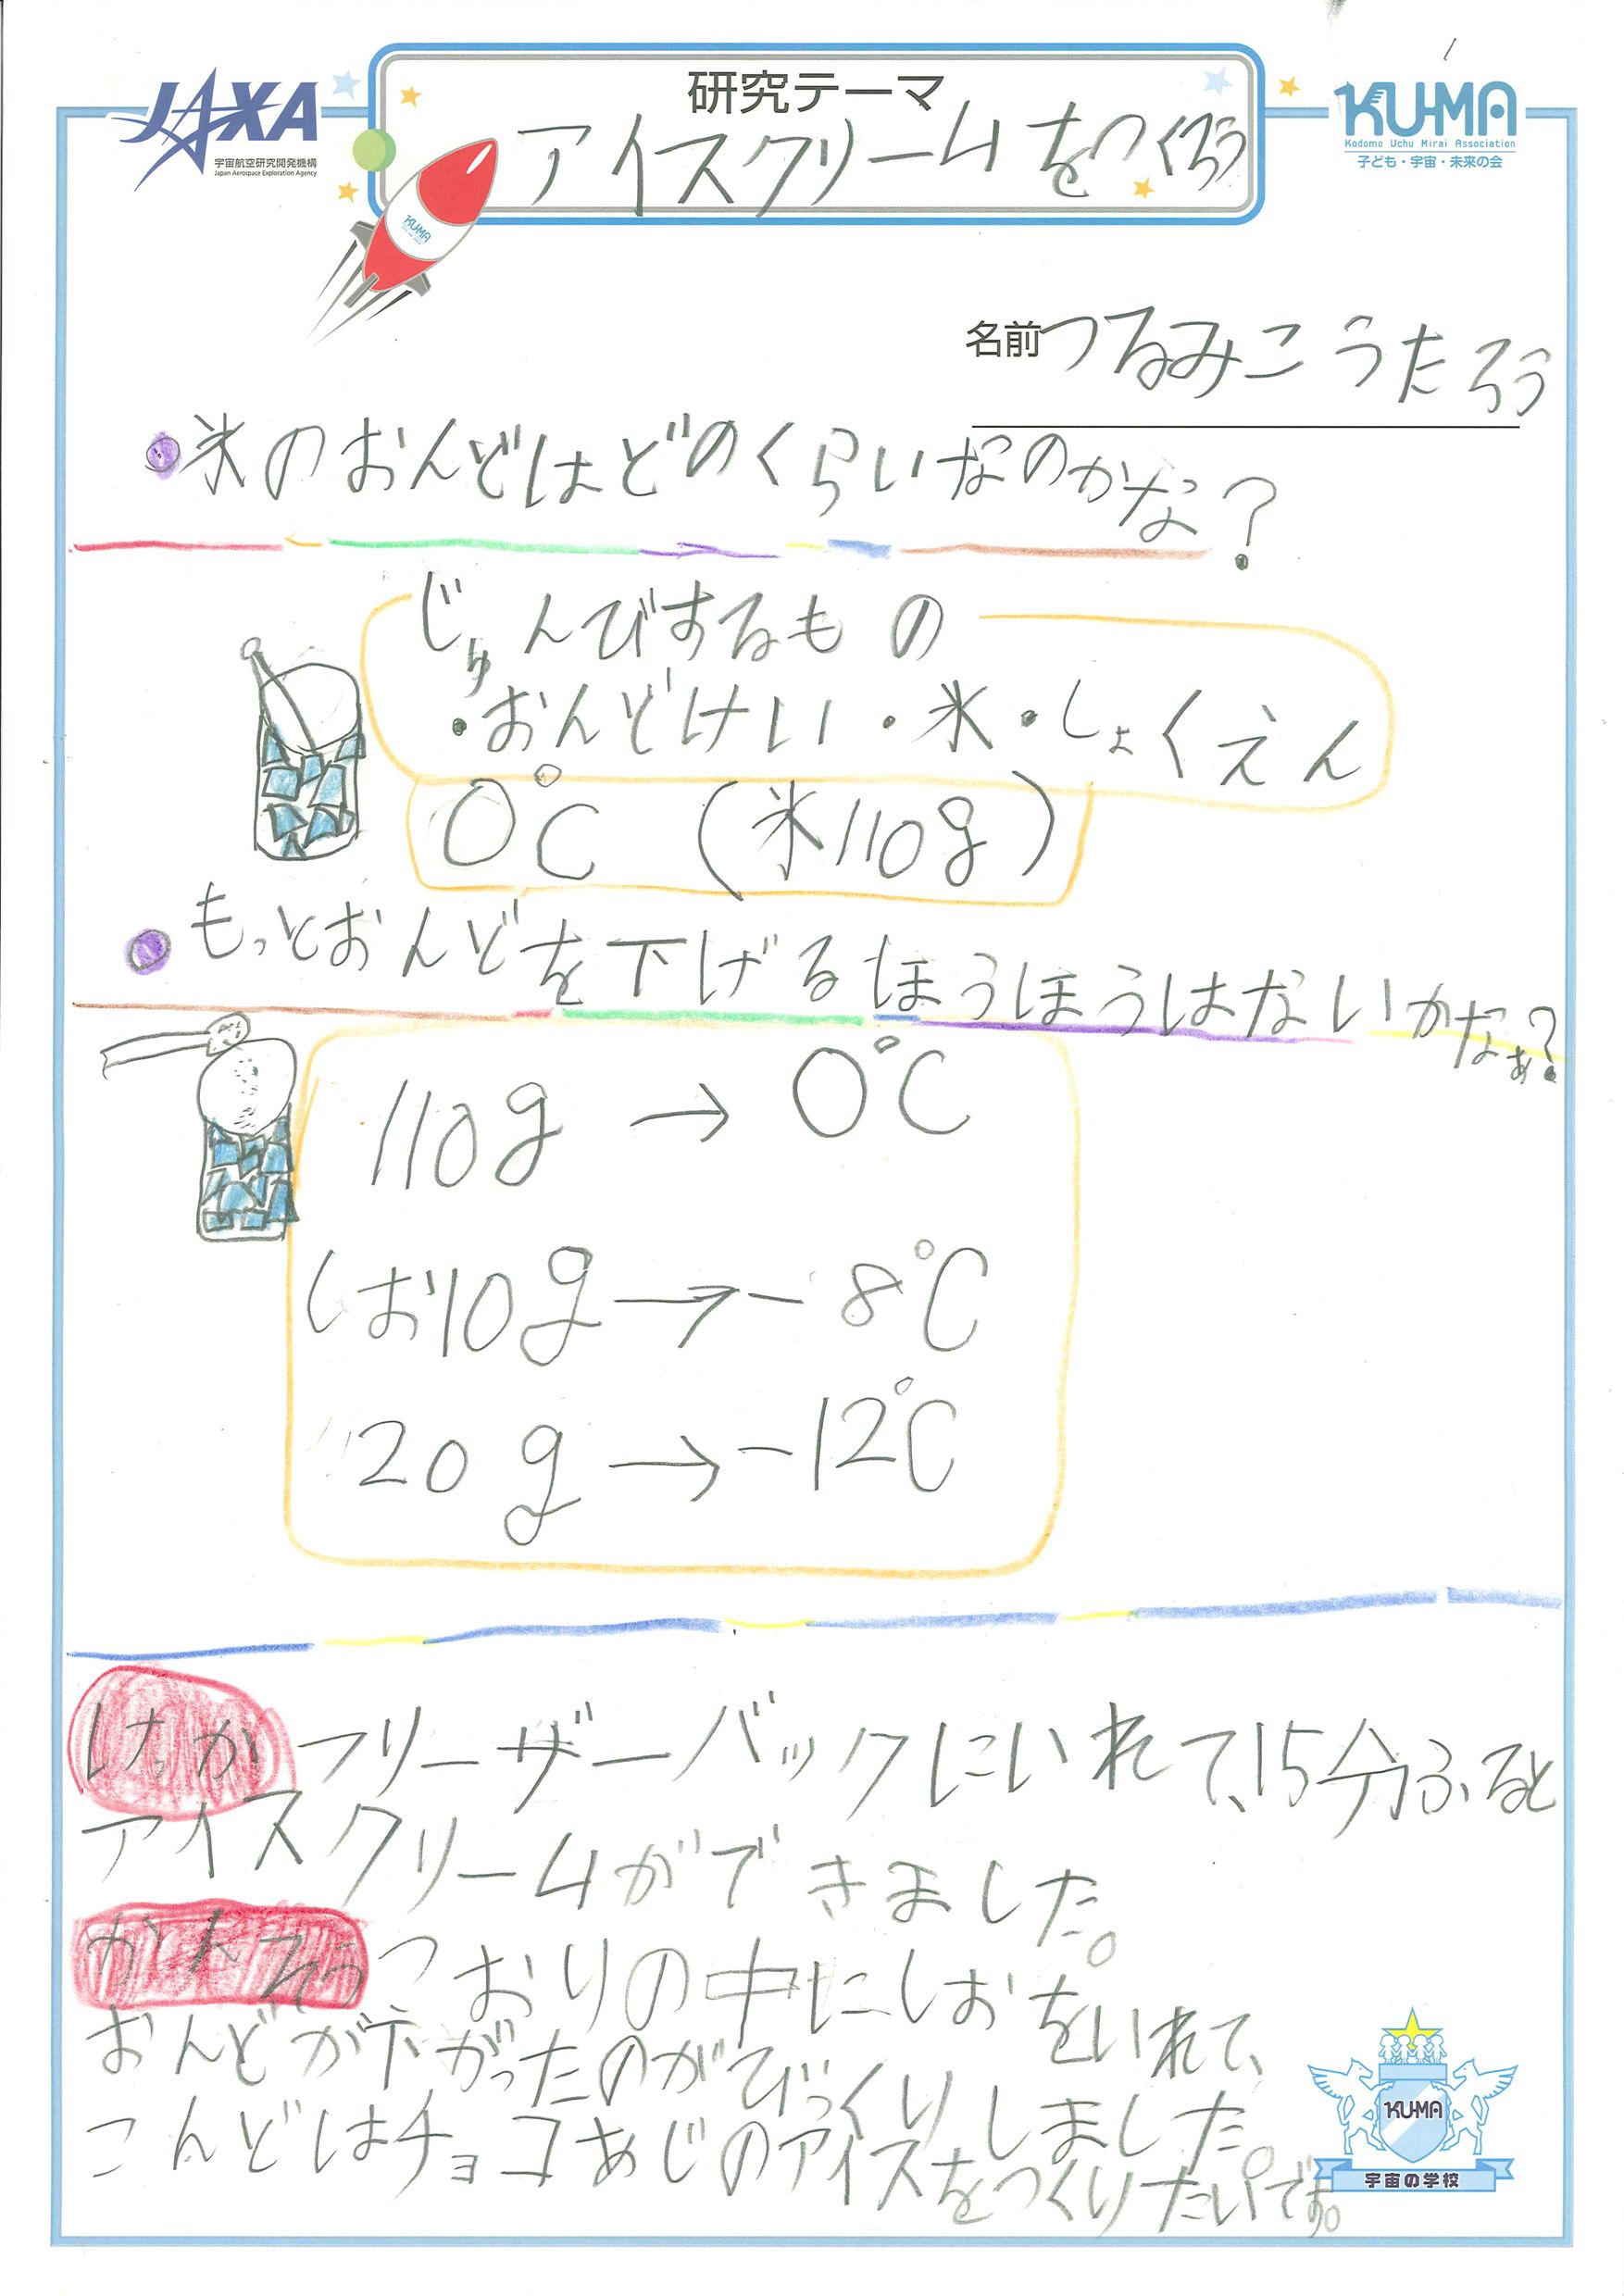 JAXA
宇宙航空研究開発機構
Japan Aerospace Exploration Agency
研究テーマ
アイスクリームをつくろう
KUMA
Kodomo Uchu Mirai Association
子ども・宇宙・未来の会
KUMA
名前 つるみこうたろう
氷のおんどはどのくらいなのかな?
じゅんびするもの
・おんどけい・氷・しょくえん
0℃ (氷110g)
もっとおんどを下げるほうほうはないかなぁ?
110g → 0℃
しお10g → -8℃
20g → -12℃
けっか フリーザーバックにいれて、15分ふると
アイスクリームができました。
かんそう こおりの中にしおをいれて、
おんどが下がったのがびっくりしました。
こんどはチョコあじのアイスをつくりたいです。
KUMA
宇宙の学校